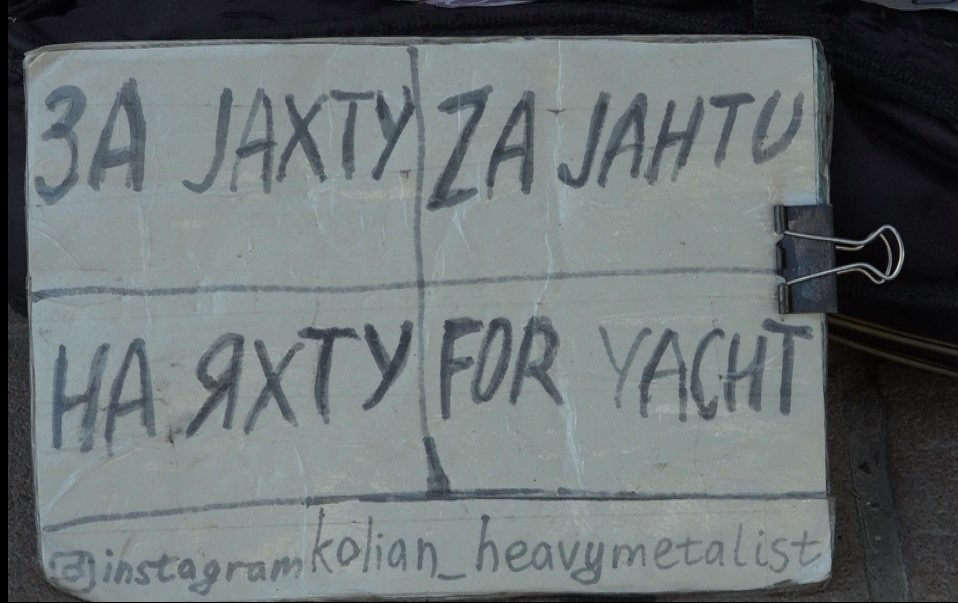 ЗА JАХТУ
ZA JAHTU
НА ЯХТУ
FOR YACHT
@instagram kolian_heavymetalist